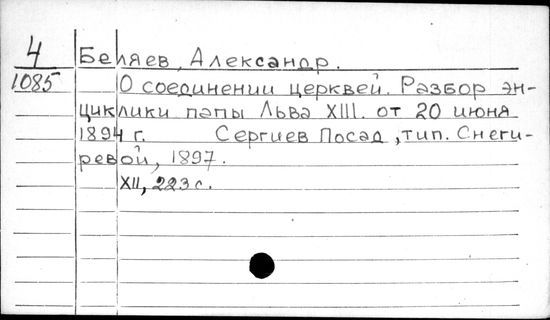 4 Беляев, Александр.
1085 О соединении церквей. Разбор эн-
циклики папы Льва XIII. от 20 июня
1894 г. Сергиев Посад, тип. Снеги-
ревой, 1897.
XII, 223 с.